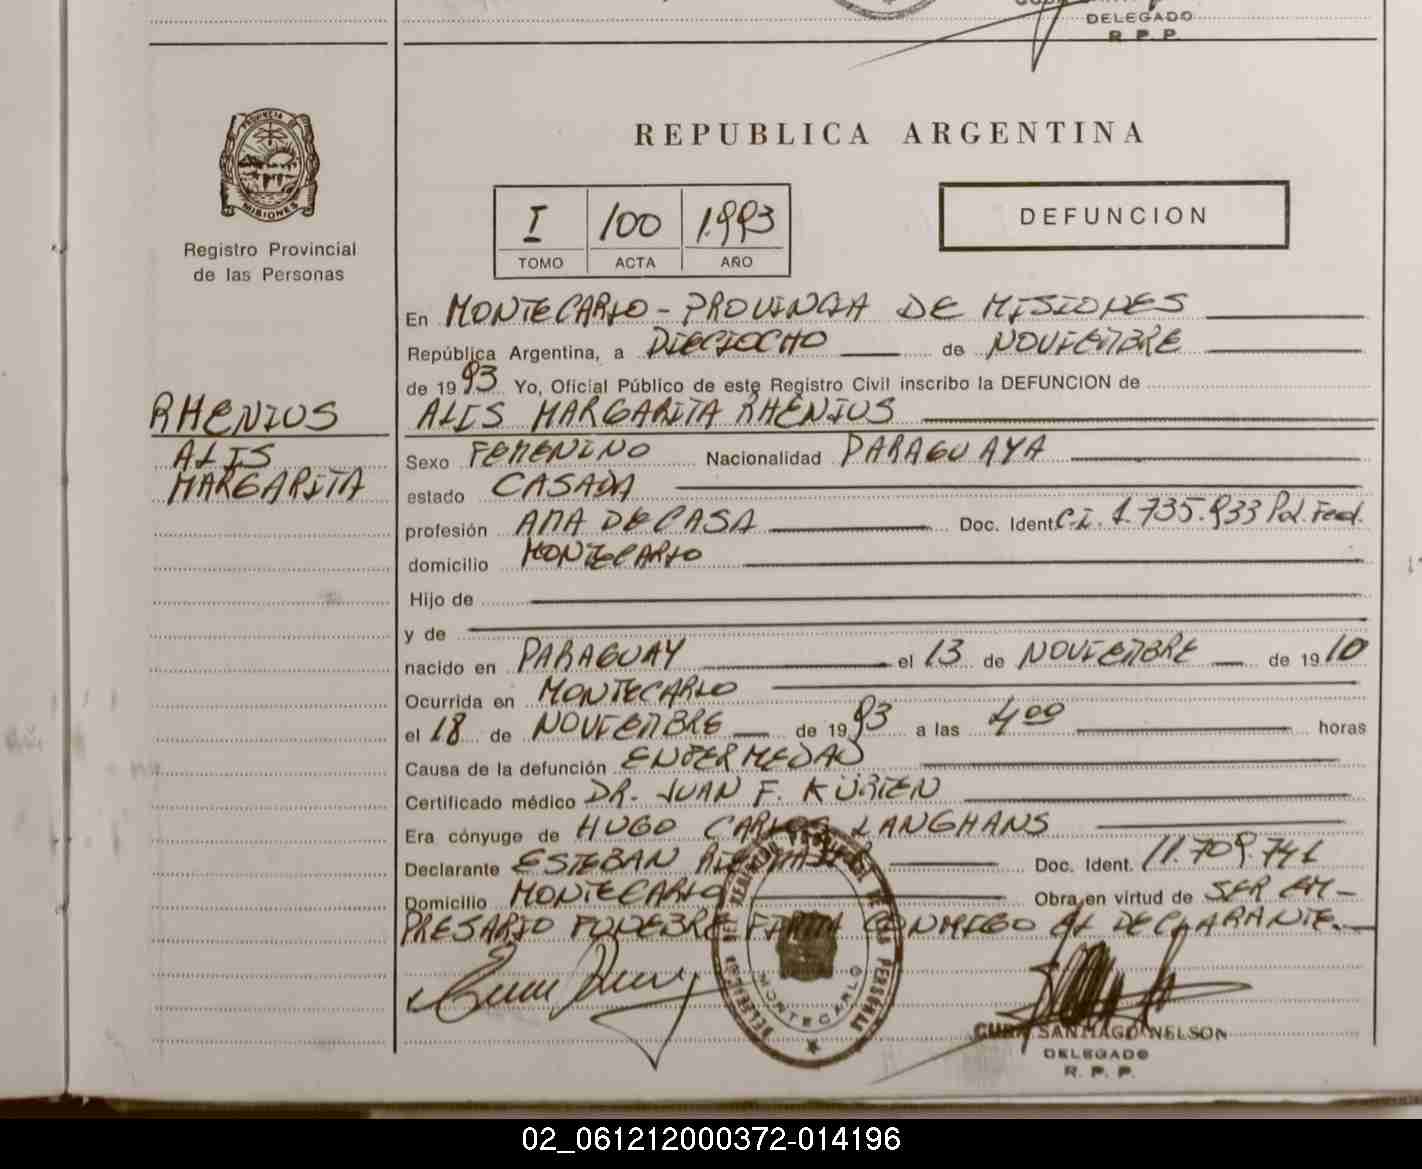 DELEGADO
R. P. P.
PROVINCIA DE
MISIONES
Registro Provincial
de las Personas
REPUBLICA ARGENTINA
I 100 1.993
TOMO ACTA AÑO
DEFUNCION
En MONTECARLO - PROVINCIA DE MISIONES
República Argentina, a DIECIOCHO de NOVIEMBRE
de 1993 Yo, Oficial Público de este Registro Civil inscribo la DEFUNCION de
RHENIUS
ALIS MARGARITA RHENIUS
ALIS
MARGARITA
Sexo FEMENINO Nacionalidad PARAGUAYA
estado CASADA
profesión AMA DE CASA Doc. Ident. C.I. 1.735.933 Pol. Fed.
domicilio MONTECARLO
Hijo de
y de
nacido en PARAGUAY el 13 de NOVIEMBRE de 1910
Ocurrida en MONTECARLO
el 18 de NOVIEMBRE de 1993 a las 4.00 horas
Causa de la defunción ENFERMEDAD
Certificado médico DR. JUAN F. KÜRTEN
Era cónyuge de HUGO CARLOS LANGHANS
Declarante ESTEBAN Doc. Ident. 11.709.741
Domicilio MONTECARLO Obra en virtud de SER EM-
PRESARIO FUNEBRE FIRMA CONMIGO EL DECLARANTE.-
MONTECARLO
CUBA SANTIAGO NELSON
DELEGADO
R. P. P.
02_061212000372-014196